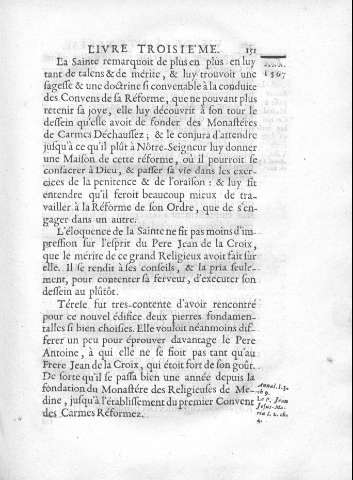 LIVRE TROISIEME. 151
La Sainte remarquoit de plus en plus en luy
1567
tant de talens & de mérite, & luy trouvoit une
sagesse & une doctrine si convenable à la conduite
des Convens de sa Réforme, que ne pouvant plus
retenir sa joye, elle luy découvrit à son tour le
dessein qu'elle avoit de fonder des Monastéres
de Carmes Déchaussez ; & le conjura d'attendre
jusqu'à ce qu'il plût à Nôtre-Seigneur luy donner
une Maison de cette réforme, où il pourroit se
consacrer à Dieu, & passer sa vie dans les exer-
cices de la penitence & de l'oraison : & luy fit
entendre qu'il feroit beaucoup mieux de tra-
vailler à la Réforme de son Ordre, que de s'en-
gager dans un autre.
L'éloquence de la Sainte ne fit pas moins d'im-
pression sur l'esprit du Pere Jean de la Croix,
que le mérite de ce grand Religieux avoit fait sur
elle. Il se rendit à ses conseils, & la pria seule-
ment, pour contenter sa ferveur, d'executer son
dessein au plûtôt.
Térese fut tres-contente d'avoir rencontré
pour ce nouvel édifice deux pierres fondamen-
tales si bien choisies. Elle vouloit néanmoins dif-
ferer un peu pour éprouver davantage le Pere
Antoine, à qui elle ne se fioit pas tant qu'au
Frere Jean de la Croix, qui étoit fort de son goût.
De sorte qu'il se passa bien une année depuis la
fondation du Monastére des Religieuses de Me-
dine, jusqu'à l'établissement du premier Convent
des Carmes Réformez.
Annal. l. 3.
Le P. Jean
Jesus-Ma-
ria l. 2. ch.